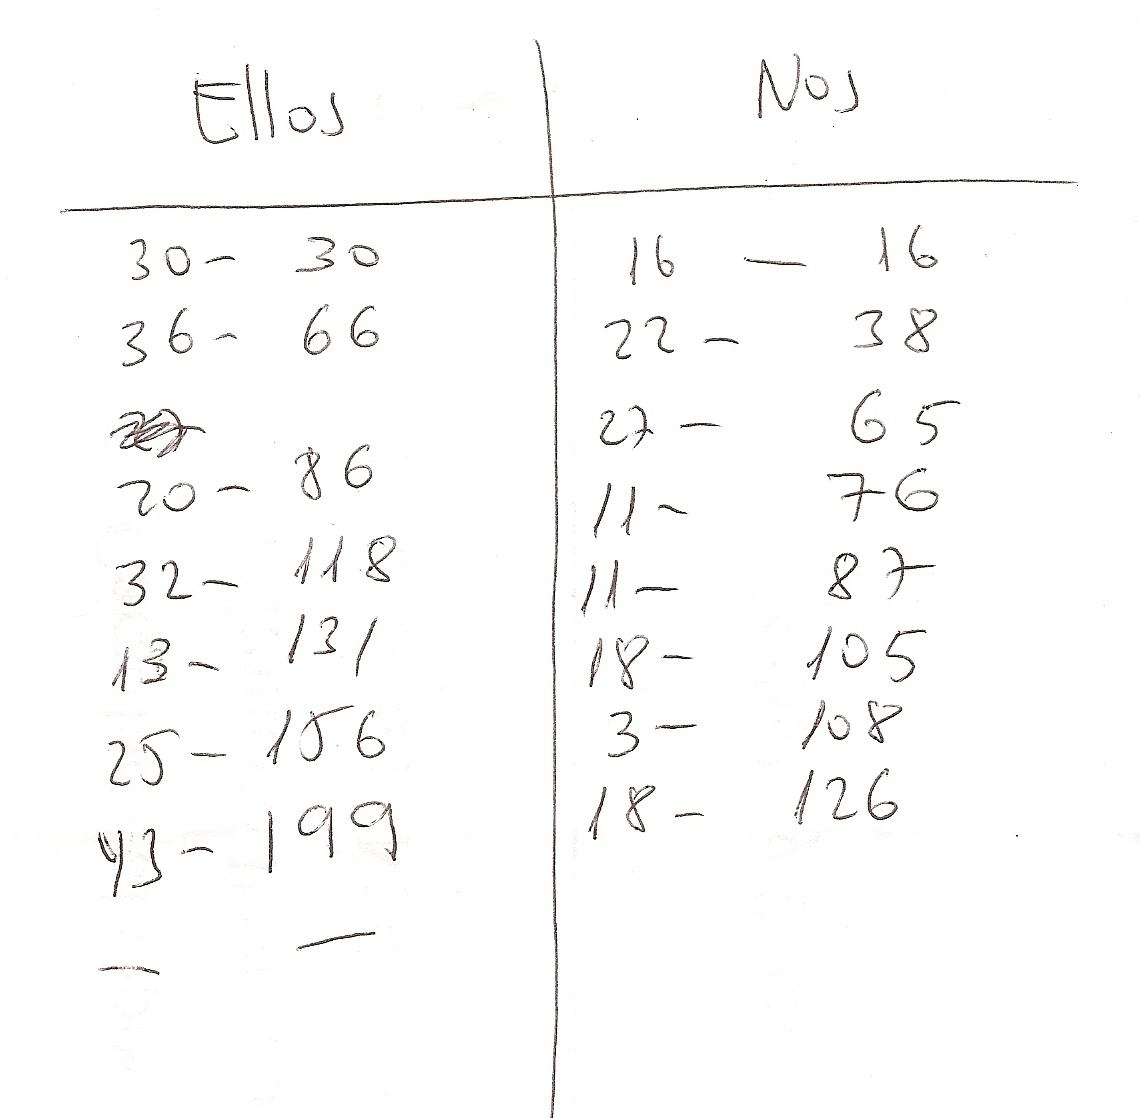 Ellos Nos
30 - 30 16 - 16
36 - 66 22 - 38
27 - 65
20 - 86 11 - 76
32 - 118 11 - 87
13 - 131 18 - 105
25 - 156 3 - 108
43 - 199 18 - 126
- -